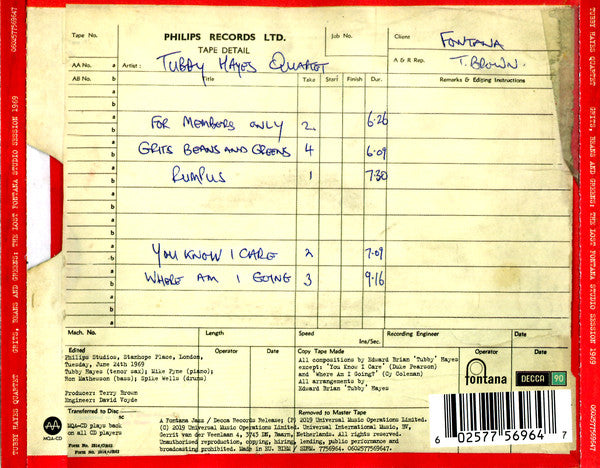 TUBBY HAYES QUARTET GRITS, BEANS AND GREENS: THE LOST FONTANA STUDIO SESSION 1969 0602577569647
Tape No. PHILIPS RECORDS LTD. Job No. Client FONTANA
TAPE DETAIL
AA No. a Artist: TUBBY HAYES QUARTET A & R Rep. T. BROWN.
AB No. b Title Take Start Finish Dur. Remarks & Editing Instructions
a
b
FOR MEMBERS ONLY 2 6.26
GRITS BEANS AND GREENS 4 6.09
RUMPUS 1 7.30
YOU KNOW I CARE 2 7.09
WHERE AM I GOING 3 9.16
Mach. No. Length Capstan Speed Recording Engineer Date
Ins/Sec.
Edited Operator Date Copy Tape Made Operator Date
Philips Studios, Stanhope Place, London,
Tuesday, June 24th 1969
Tubby Hayes (tenor sax); Mike Pyne (piano);
Ron Mathewson (bass); Spike Wells (drums)
Producer: Terry Brown
Engineer: David Voyde
All compositions by Edward Brian 'Tubby' Hayes
except: 'You Know I Care' (Duke Pearson)
and 'Where Am I Going?' (Cy Coleman)
All arrangements by
Edward Brian 'Tubby' Hayes
fontana
DECCA 90
Transferred to Disc
Removed to Master Tape
MQA-CD
MQA-CD plays back
on all CD players
A Fontana Jazz / Decca Records Release; (P) 2019 Universal Music Operations Limited.
(C) 2019 Universal Music Operations Limited. Universal Music BV,
Gerrit van der Veenlaan 4, 3743 DN, Baarn, Netherlands. All rights reserved.
Unauthorised reproduction, copying, hiring, lending, public performance and
broadcasting prohibited. Made in EU. BIEM / SDRM. 7756964. 0602577569647
6 02577 56964 7
TUBBY HAYES QUARTET GRITS, BEANS AND GREENS: THE LOST FONTANA STUDIO SESSION 1969 0602577569647